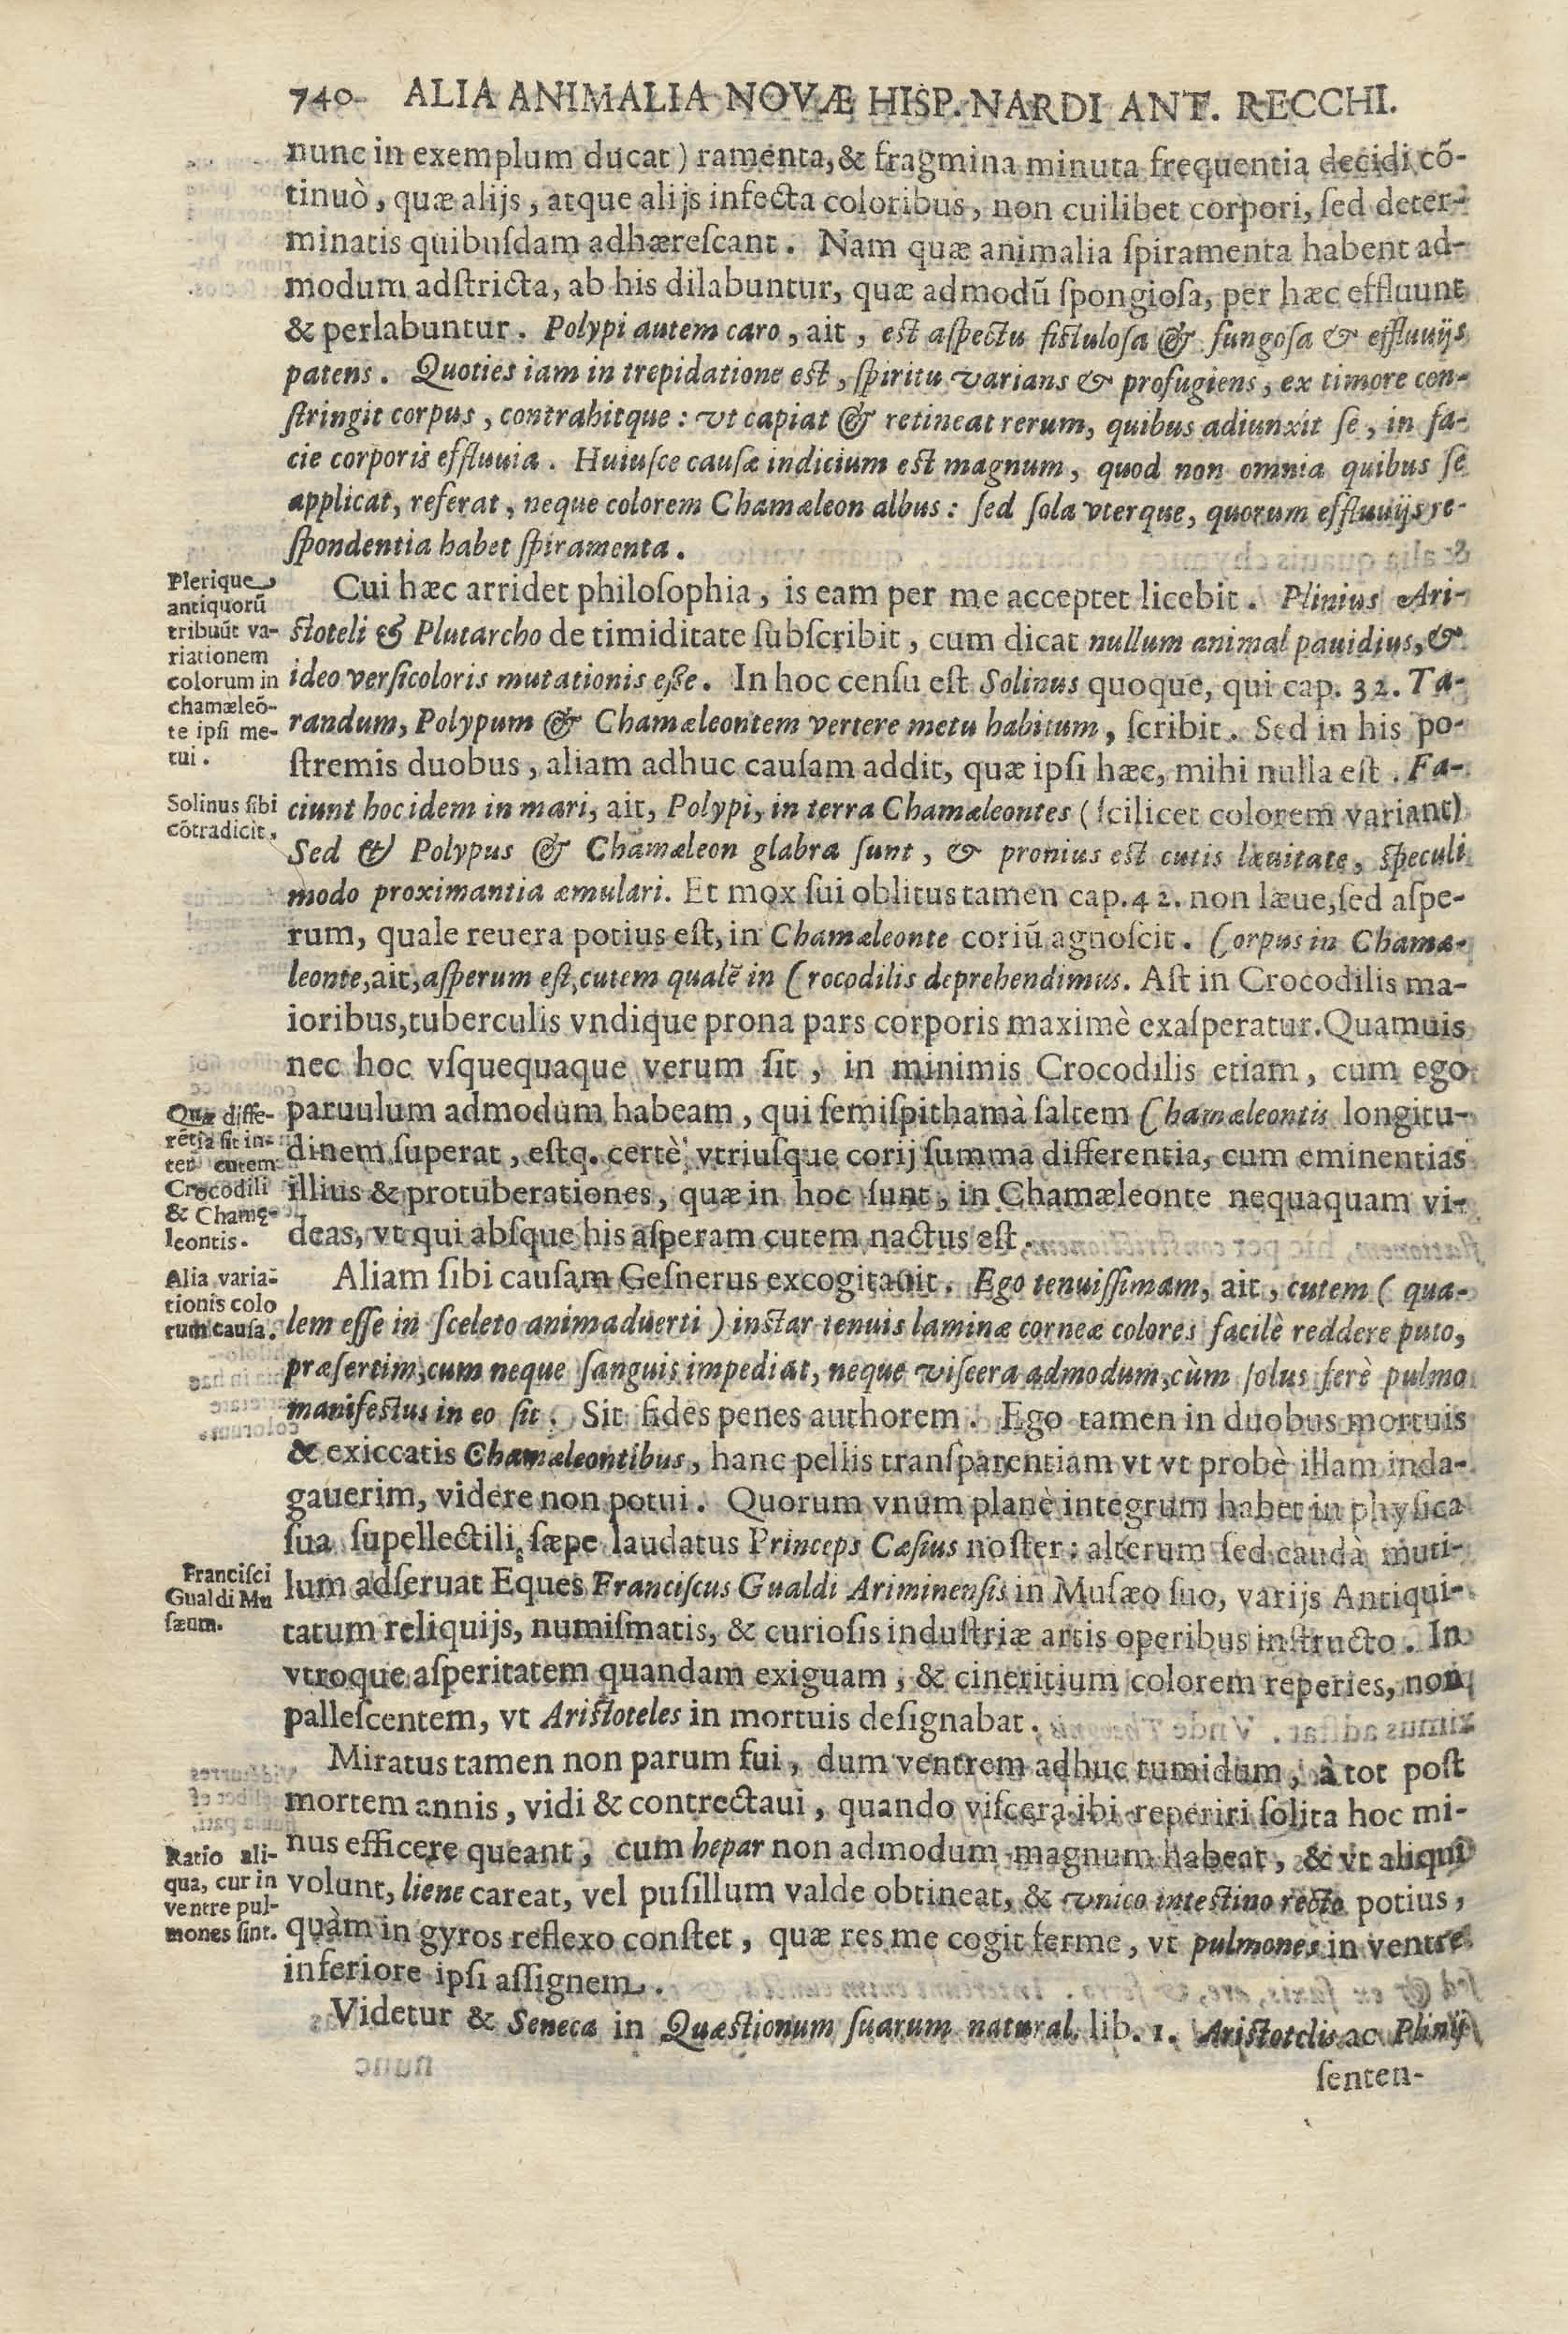 740 ALIA ANIMALIA NOVÆ HISP. NARDI ANT. RECCHI.
nunc in exemplum ducat) ramenta, & fragmina minuta frequentia decidi cõ-
tinuò, quæ alijs, atque alijs infecta coloribus, non cuilibet corpori, ſed deter-
minatis quibuſdam adhæreſcant. Nam quæ animalia ſpiramenta habent ad-
modum adſtricta, ab his dilabuntur, quæ admodũ ſpongioſa, per hæc effluunt
& perlabuntur. Polypi autem caro, ait, eſt aſpectu fiſtuloſa & fungoſa & effluuijs
patens. Quoties iam in trepidatione eſt, ſpiritu varians & profugiens, ex timore con-
ſtringit corpus, contrahitque: vt capiat & retineat rerum, quibus adiunxit ſe, in fa-
cie corporis effluuia. Huiuſce cauſæ indicium eſt magnum, quod non omnia quibus ſe
applicat, referat, neque colorem Chamæleon albus: ſed ſola vterque, quorum effluuijs re-
ſpondentia habet ſpiramenta.
Plerique
antiquorũ
tribuũt va-
riationem
colorum in
chamæleõ-
te ipſi me-
tui.
Cui hæc arridet philoſophia, is eam per me acceptet licebit. Plinius Ari-
ſtoteli & Plutarcho de timiditate ſubſcribit, cum dicat nullum animal pauidius, &
ideo verſicoloris mutationis eſſe. In hoc cenſu eſt Solinus quoque, qui cap. 32. Ta-
randum, Polypum & Chamæleontem vertere metu habitum, ſcribit. Sed in his po-
ſtremis duobus, aliam adhuc cauſam addit, quæ ipſi hæc, mihi nulla eſt. Fa-
Solinus ſibi
cõtradicit.
ciunt hoc idem in mari, ait, Polypi, in terra Chamæleontes (ſcilicet colorem variant)
Sed & Polypus & Chamæleon glabra ſunt, & pronius eſt cutis læuitate, ſpeculi
modo proximantia æmulari. Et mox ſui oblitus tamen cap. 42. non læue, ſed aſpe-
rum, quale reuera potius eſt, in Chamæleonte coriũ agnoſcit. Corpus in Chamæ-
leonte, ait, aſperum eſt, cutem qualẽ in Crocodilis deprehendimus. Aſt in Crocodilis ma-
ioribus, tuberculis vndique prona pars corporis maximè exaſperatur. Quamuis
nec hoc vſquequaque verum ſit, in minimis Crocodilis etiam, cum ego
Quæ diffe-
rẽtia ſit in-
ter cutem
Crocodili
& Chamę-
leontis.
paruulum admodum habeam, qui ſemiſpithamà ſaltem Chamæleontis longitu-
dinem ſuperat, eſtq. certè vtriuſque corij ſumma differentia, cum eminentias
illius & protuberationes, quæ in hoc ſunt, in Chamæleonte nequaquam vi-
deas, vt qui abſque his aſperam cutem nactus eſt.
Alia varia-
tionis colo
rum cauſa.
Aliam ſibi cauſam Geſnerus excogitauit. Ego tenuiſſimam, ait, cutem (qua-
lem eſſe in ſceleto animaduerti) inſtar tenuis laminæ corneæ colores facilè reddere puto,
præſertim, cum neque ſanguis impediat, neque viſcera admodum, cùm ſolus ferè pulmo
manifeſtus in eo ſit. Sit fides penes authorem. Ego tamen in duobus mortuis
& exiccatis Chamæleontibus, hanc pellis tranſparentiam vt vt probè illam inda-
gauerim, videre non potui. Quorum vnum planè integrum habet in phyſica
ſua ſupellectili, ſæpe laudatus Princeps Cæſius noſter: alterum ſed caudà muti-
Franciſci
Gualdi Mu
ſæum.
lum adſeruat Eques Franciſcus Gualdi Ariminenſis in Muſæo ſuo, varijs Antiqui-
tatum reliquijs, numiſmatis, & curioſis induſtriæ artis operibus inſtructo. In
vtroque aſperitatem quandam exiguam, & cineritium colorem reperies, non
palleſcentem, vt Ariſtoteles in mortuis deſignabat.
Miratus tamen non parum fui, dum ventrem adhuc tumidum, à tot poſt
mortem annis, vidi & contrectaui, quando viſcera ibi reperiri ſolita hoc mi-
Ratio ali-
qua, cur in
ventre pul-
mones ſint.
nus efficere queant, cum hepar non admodum magnum habeat, & vt aliqui
volunt, liene careat, vel puſillum valde obtineat, & vnico inteſtino recto potius,
quàm in gyros reflexo conſtet, quæ res me cogit ferme, vt pulmones in ventre
inferiore ipſi aſſignem.
Videtur & Seneca in Quæſtionum ſuarum natural. lib. 1. Ariſtotelis ac Plinij
ſenten-